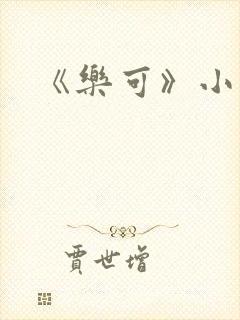 《樂可》小
賈世增